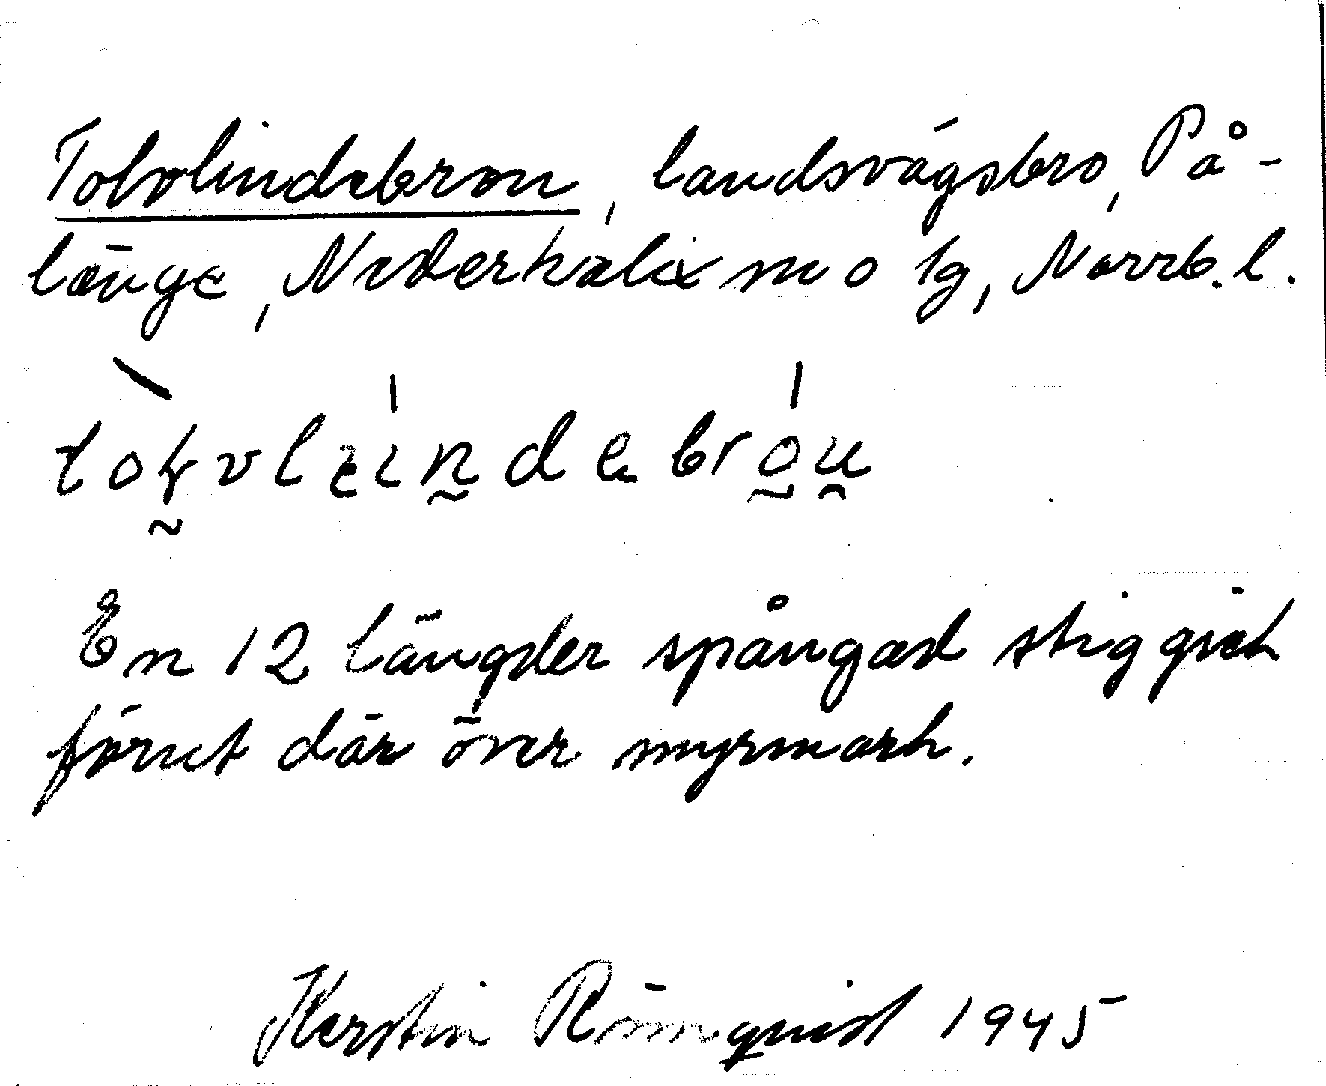 Tolvlindebron, landsvägsbro, På-
länge, Nederkalix sn o lg, Norrb. l.
En 12 längder spångad stig gick
förut där över myrmark.
Kerstin Rönnquist 1945